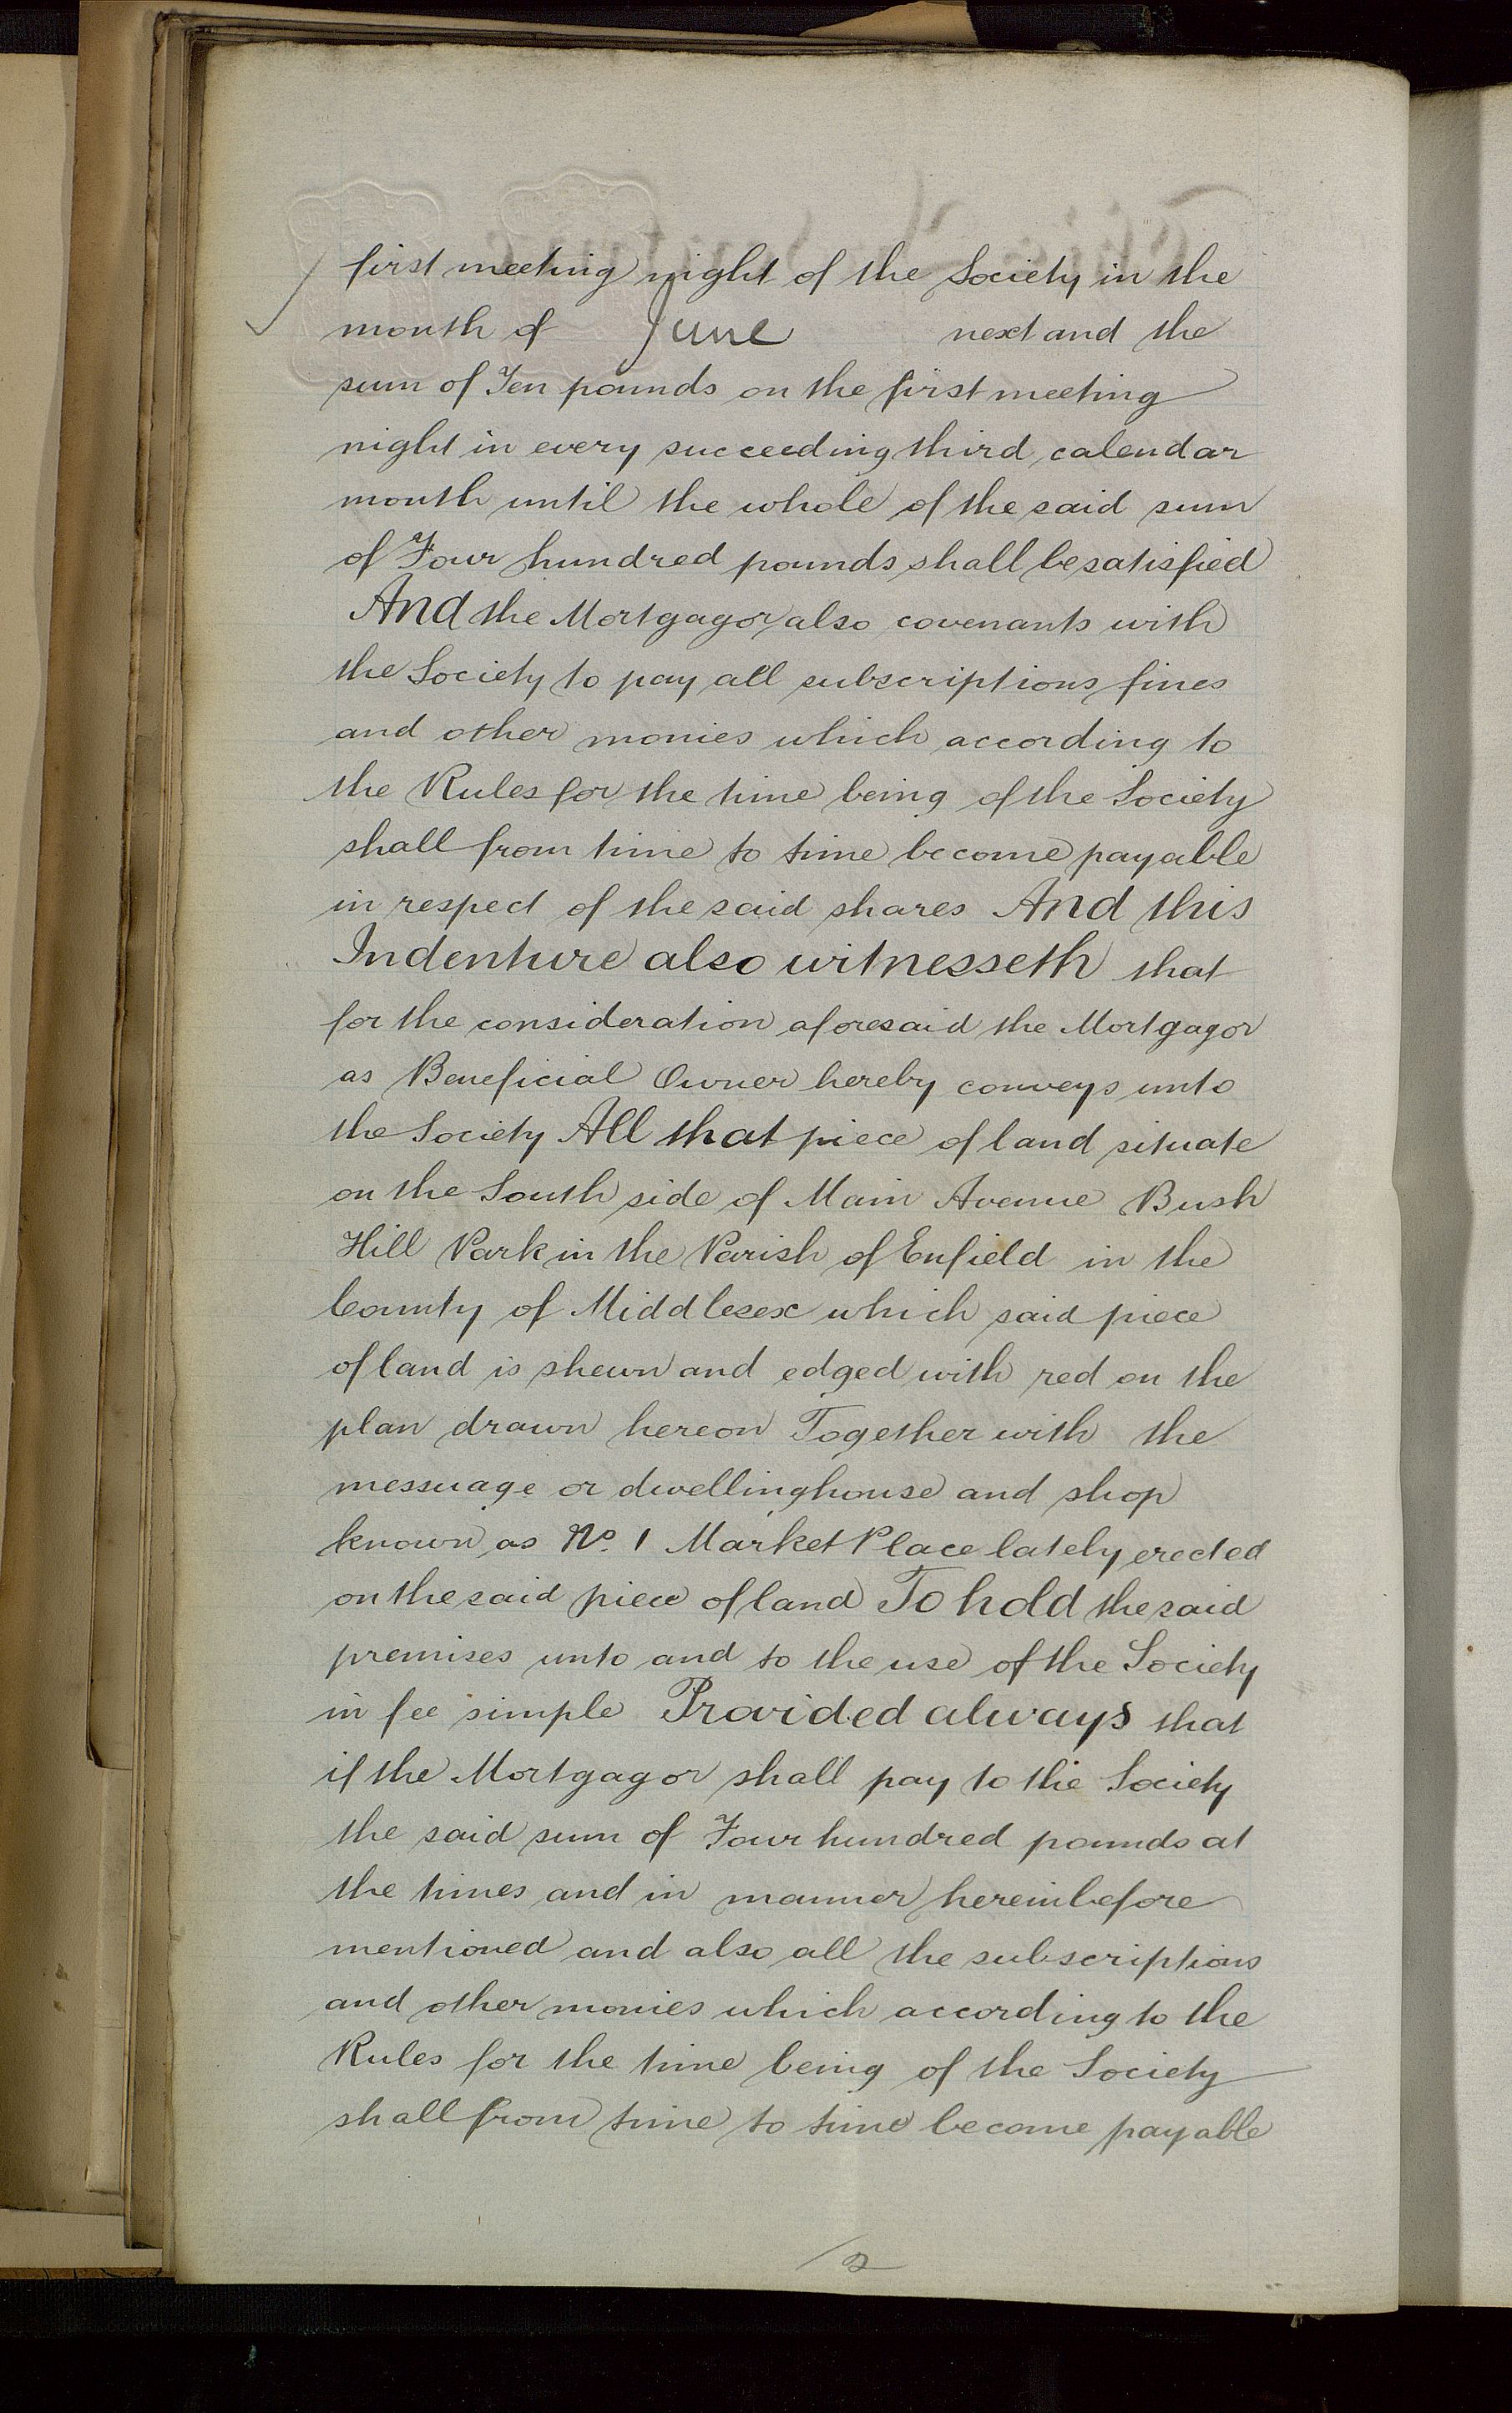 first meeting night of the Society in the
month of June next and the
sum of Ten pounds on the first meeting
night in every succeeding third calendar
month until the whole of the said sum
of Four hundred pounds shall be satisfied
And the Mortgagor also covenants with
the Society to pay all subscriptions fines
and other monies which according to
the Rules for the time being of the Society
shall from time to time become payable
in respect of the said shares And this
Indenture also witnesseth that
for the consideration aforesaid the Mortgagor
as Beneficial Owner hereby conveys unto
the Society All that piece of land situate
on the South side of Main Avenue Bush
Hill Park in the Parish of Enfield in the
County of Middlesex which said piece
of land is shewn and edged with red on the
plan drawn hereon Together with the
messuage or dwellinghouse and shop
known as No. 1 Market Place lately erected
on the said piece of land To hold the said
premises unto and to the use of the Society
in fee simple Provided always that
if the Mortgagor shall pay to the Society
the said sum of Four hundred pounds at
the times and in manner hereinbefore
mentioned and also all the subscriptions
and other monies which according to the
Rules for the time being of the Society
shall from time to time become payable
2